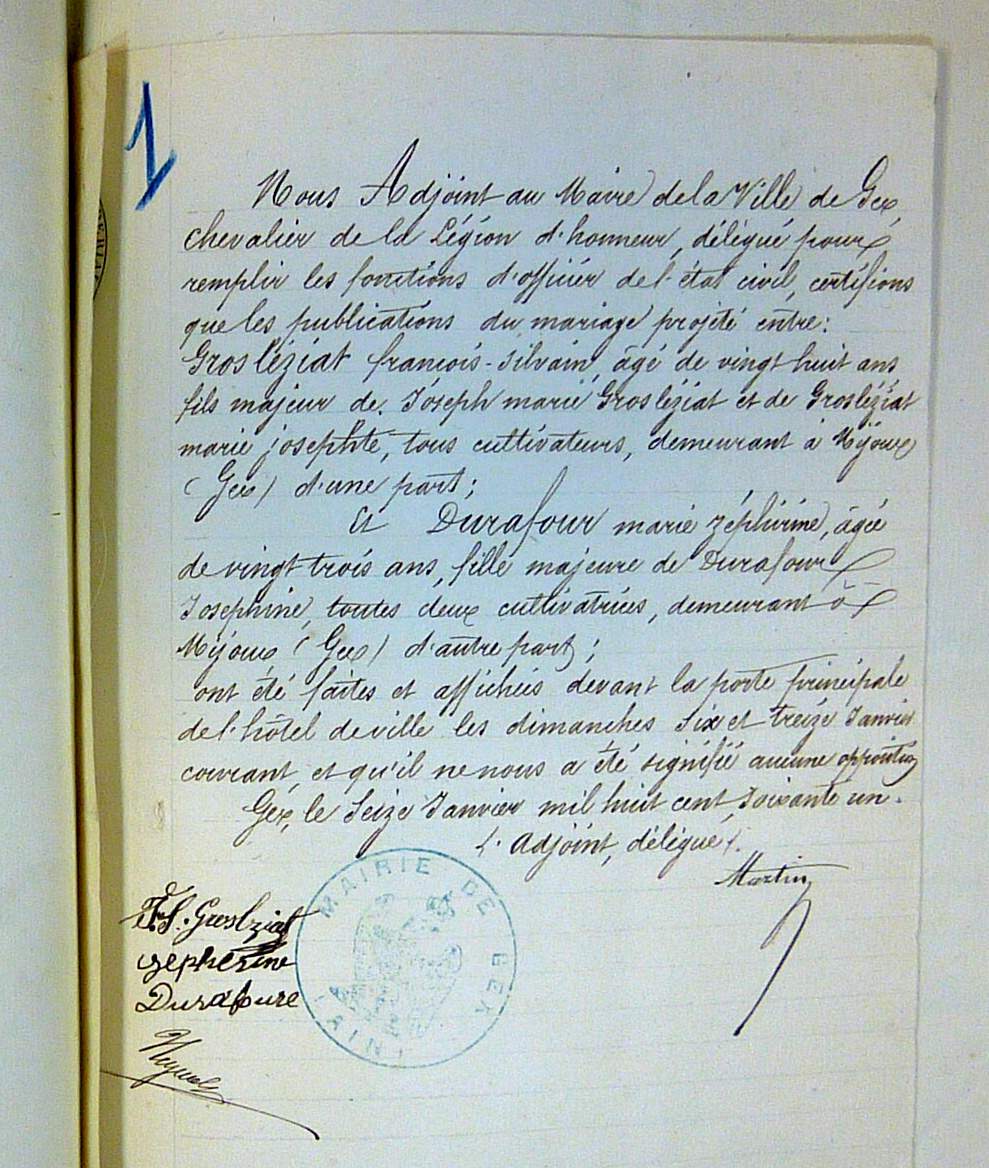 1
Nous Adjoint au Maire de la Ville de Gex,
chevalier de la Légion d'honneur, délégué pour
remplir les fonctions d'officier de l'état civil, certifions
que les publications du mariage projeté entre:
Grosléziat francois-Silvain, âgé de vingt huit ans
fils majeur de Joseph marie Grosléziat et de Grosléziat
marie josephte, tous cultivateurs, demeurant à Mijoux
(Gex) d'une part;
Et Durafour marie zéphirine, âgée
de vingt trois ans, fille majeure de Durafour
Josephine, toutes deux cultivatrices, demeurant à
Mijoux (Gex) d'autre part;
ont été faites et affichées devant la porte principale
de l'hôtel de ville les dimanches Six et treize Janvier
courant, et qu'il ne nous a été signifié aucune opposition
Gex, le Seize Janvier mil huit cent soixante un.
L'Adjoint, délégué.
Martin
MAIRIE DE GEX
(AIN)
F.S. Groslziat
zepherine
Durafoure